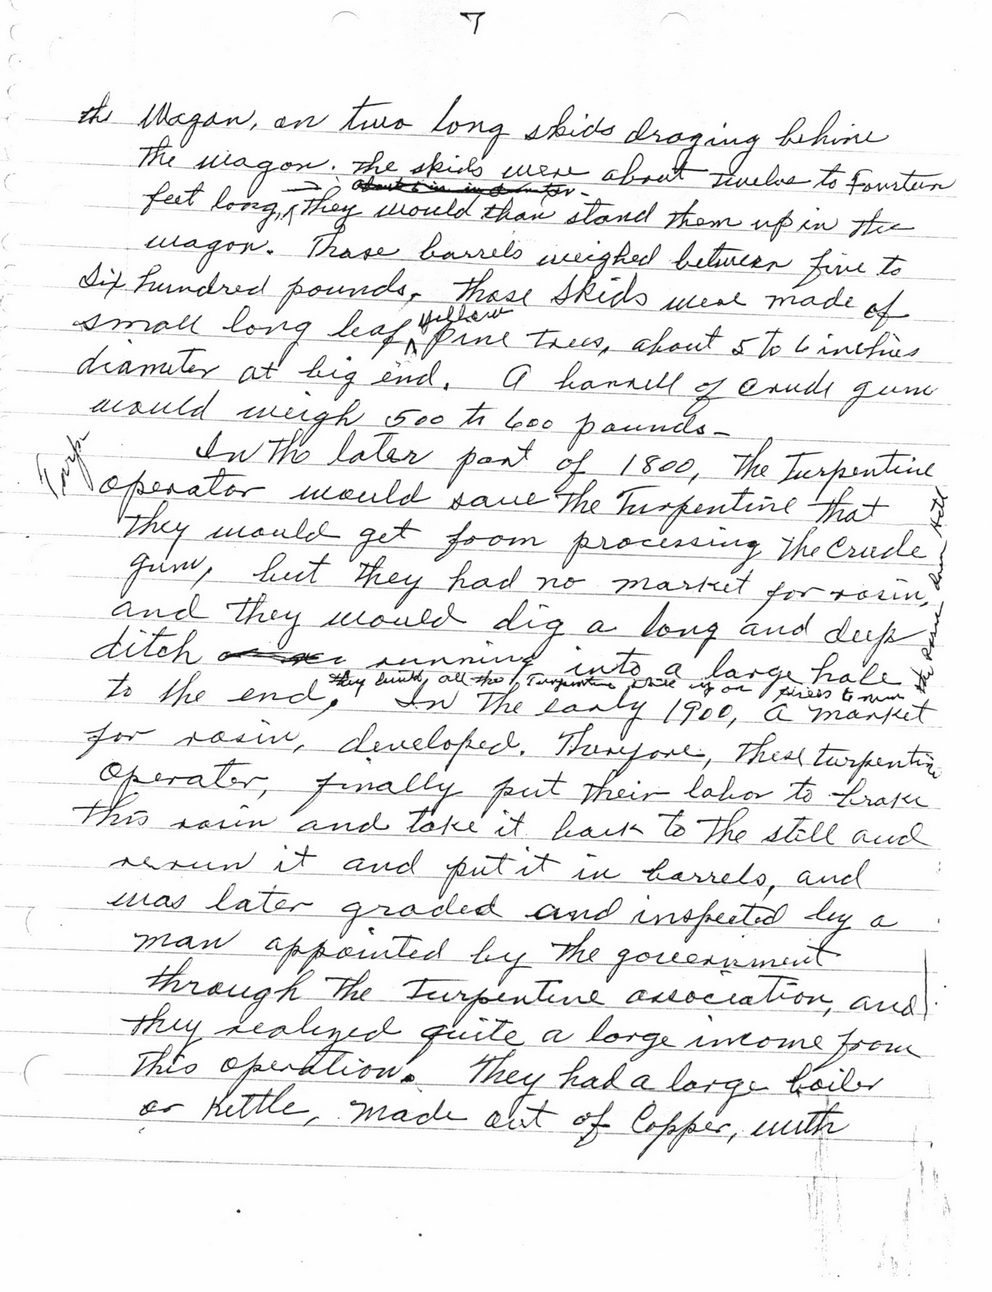 7
the Wagon, on two long skids draging behine
the wagon. The skids were about twelve to Fourteen
feet long, they would than stand them up in the
wagon. Those barrels weighed between five to
Six hundred pounds. Those Skids were made of
small long leaf yellow Pine Trees, about 5 to 6 inches
diameter at big end. A barrell of crude gum
would weigh 500 to 600 pounds-
In the later part of 1800, the Turpentine
operator would save the Turpentine that
they would get from processing the Crude
gum, but they had no market for rosin,
and they would dig a long and deep
ditch running into a large hole
they built all the Turpentine still up on hills to run
the rosin down hill
to the end. In the early 1900, a market
for rosin, developed. Therefore, these turpentine
operater, finally put their labor to brake
this rosin and take it back to the still and
rerun it and put it in barrels, and
was later graded and inspected by a
man appointed by the government
through the Turpentine association, and
they realized quite a large income from
this operation. They had a large boiler
or Kettle, made out of Copper, with